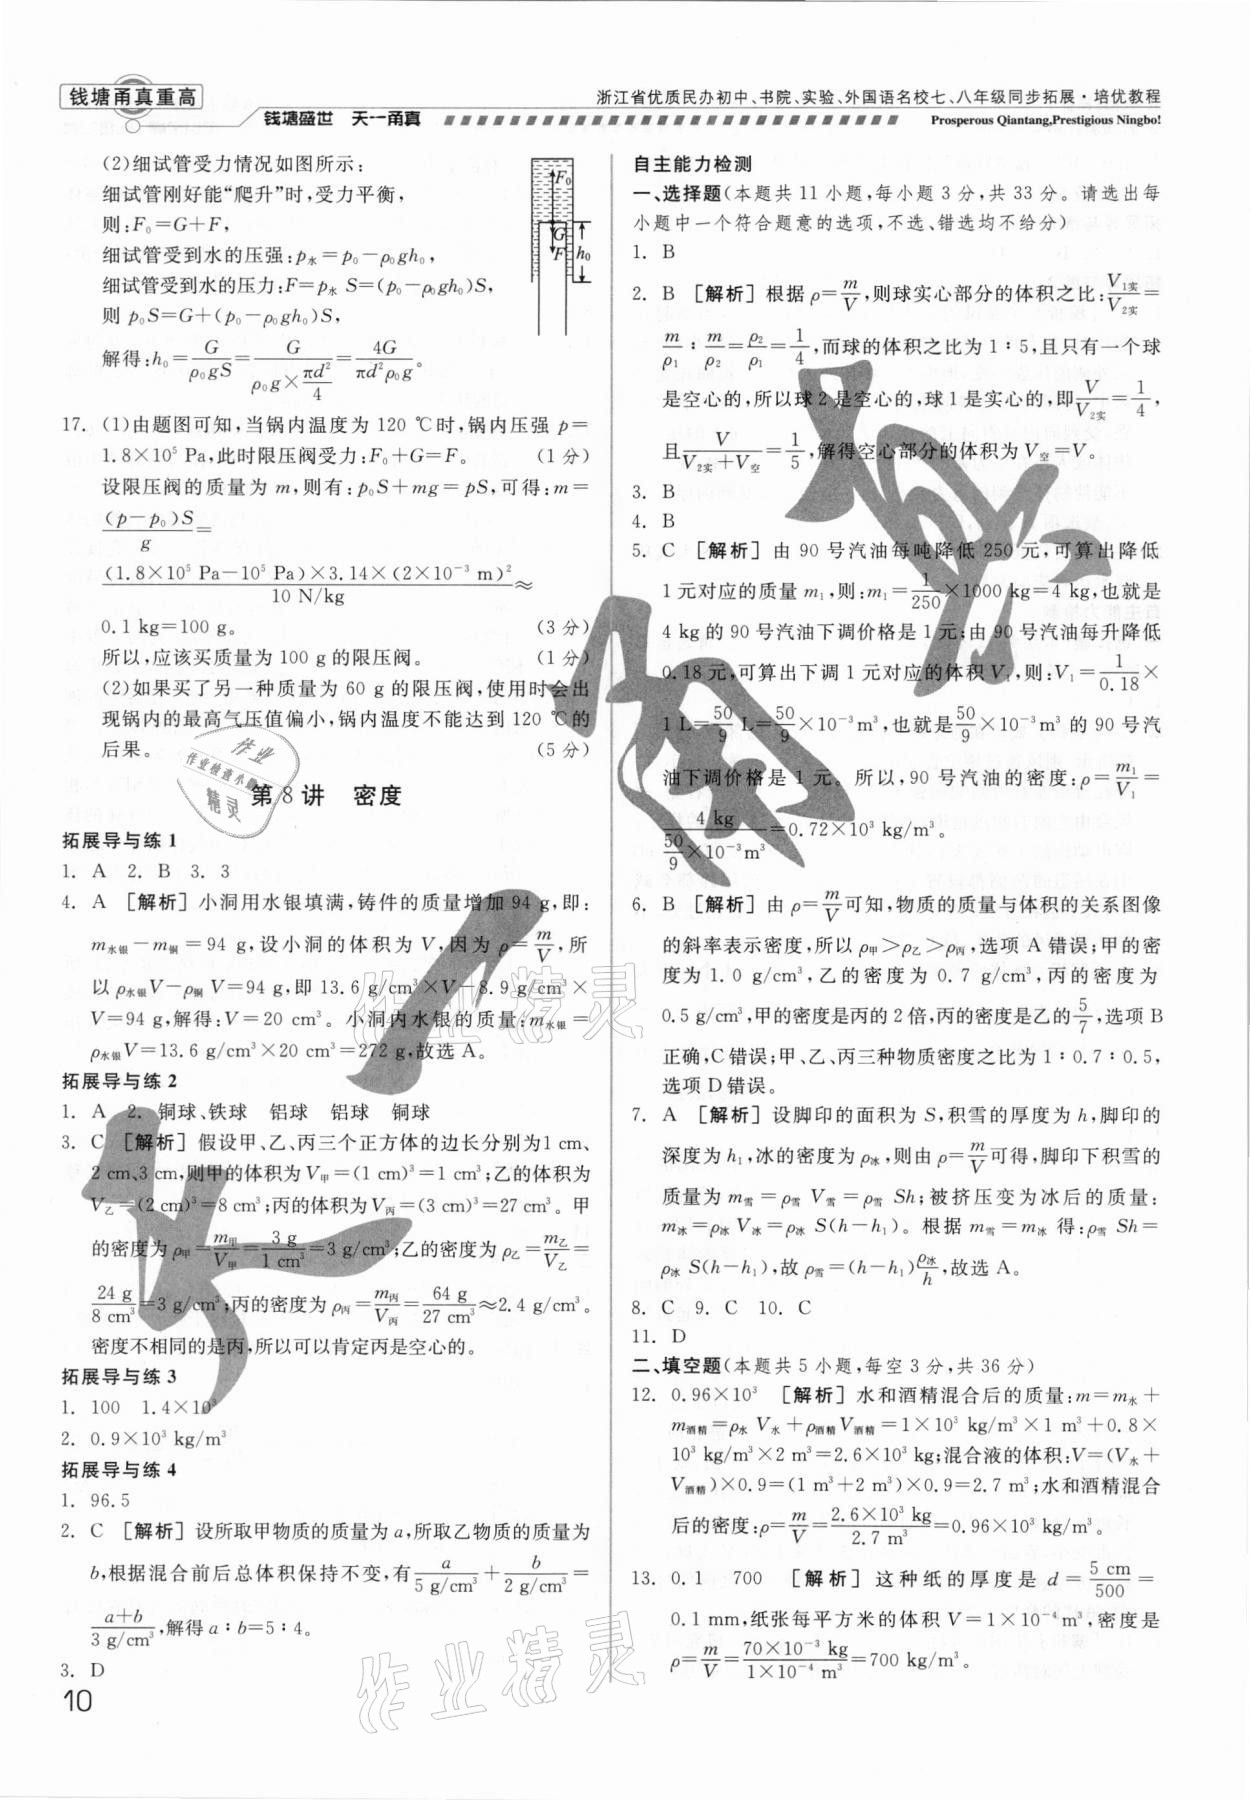 钱塘甬真重高
钱塘盛世 天一甬真
浙江省优质民办初中、书院、实验、外国语名校七、八年级同步拓展·培优教程
Prosperous Qiantang,Prestigious Ningbo!
(2)细试管受力情况如图所示:
细试管刚好能“爬升”时,受力平衡,
则:F₀=G+F,
细试管受到水的压强:p水=p₀-ρ₀gh₀,
细试管受到水的压力:F=p水 S=(p₀-ρ₀gh₀)S,
则 p₀S=G+(p₀-ρ₀gh₀)S,
解得:h₀=G/(ρ₀gS)=G/(ρ₀g×πd²/4)=4G/(πd²ρ₀g)。
F₀
G
F
h₀
17. (1)由题图可知,当锅内温度为 120 ℃时,锅内压强 p=
1.8×10⁵ Pa,此时限压阀受力:F₀+G=F。 (1 分)
设限压阀的质量为 m,则有:p₀S+mg=pS,可得:m=
(p-p₀)S/g=
(1.8×10⁵ Pa-10⁵ Pa)×3.14×(2×10⁻³ m)²/10 N/kg≈
0.1 kg=100 g。 (3 分)
所以,应该买质量为 100 g 的限压阀。 (1 分)
(2)如果买了另一种质量为 60 g 的限压阀,使用时会出
现锅内的最高气压值偏小,锅内温度不能达到 120 ℃的
后果。 (5 分)
第 8 讲 密度
拓展导与练 1
1. A 2. B 3. 3
4. A [解析]小洞用水银填满,铸件的质量增加 94 g,即:
m水银-m铜=94 g,设小洞的体积为 V,因为 ρ=m/V,所
以 ρ水银V-ρ铜 V=94 g,即 13.6 g/cm³×V-8.9 g/cm³×
V=94 g,解得:V=20 cm³。小洞内水银的质量:m水银=
ρ水银V=13.6 g/cm³×20 cm³=272 g,故选 A。
拓展导与练 2
1. A 2. 铜球、铁球 铝球 铝球 铜球
3. C [解析]假设甲、乙、丙三个正方体的边长分别为1 cm、
2 cm、3 cm,则甲的体积为 V甲=(1 cm)³=1 cm³;乙的体积为
V乙=(2 cm)³=8 cm³;丙的体积为 V丙=(3 cm)³=27 cm³。甲
的密度为 ρ甲=m甲/V甲=3 g/1 cm³=3 g/cm³;乙的密度为 ρ乙=m乙/V乙=
24 g/8 cm³=3 g/cm³;丙的密度为 ρ丙=m丙/V丙=64 g/27 cm³≈2.4 g/cm³。
密度不相同的是丙,所以可以肯定丙是空心的。
拓展导与练 3
1. 100 1.4×10³
2. 0.9×10³ kg/m³
拓展导与练 4
1. 96.5
2. C [解析]设所取甲物质的质量为 a,所取乙物质的质量为
b,根据混合前后总体积保持不变,有 a/5 g/cm³+b/2 g/cm³=
(a+b)/3 g/cm³,解得 a∶b=5∶4。
3. D
10
自主能力检测
一、选择题(本题共 11 小题,每小题 3 分,共 33 分。请选出每
小题中一个符合题意的选项,不选、错选均不给分)
1. B
2. B [解析]根据 ρ=m/V,则球实心部分的体积之比:V1实/V2实=
m/ρ₁∶m/ρ₂=ρ₂/ρ₁=1/4,而球的体积之比为 1∶5,且只有一个球
是空心的,所以球 2 是空心的,球 1 是实心的,即V/V2实=1/4,
且V/(V2实+V空)=1/5,解得空心部分的体积为 V空=V。
3. B
4. B
5. C [解析]由 90 号汽油每吨降低 250 元,可算出降低
1 元对应的质量 m₁,则:m₁=1/250×1000 kg=4 kg,也就是
4 kg 的 90 号汽油下调价格是 1 元;由 90 号汽油每升降低
0.18 元,可算出下调 1 元对应的体积 V₁,则:V₁=1/0.18×
1 L=50/9 L=50/9×10⁻³m³,也就是50/9×10⁻³m³ 的 90 号汽
油下调价格是 1 元。所以,90 号汽油的密度:ρ=m₁/V₁=
4 kg/(50/9×10⁻³m³)=0.72×10³ kg/m³。
6. B [解析]由 ρ=m/V可知,物质的质量与体积的关系图像
的斜率表示密度,所以 ρ甲>ρ乙>ρ丙,选项 A 错误;甲的密
度为 1.0 g/cm³,乙的密度为 0.7 g/cm³,丙的密度为
0.5 g/cm³,甲的密度是丙的 2倍,丙的密度是乙的5/7,选项 B
正确,C 错误;甲、乙、丙三种物质密度之比为 1∶0.7∶0.5,
选项 D 错误。
7. A [解析]设脚印的面积为 S,积雪的厚度为 h,脚印的
深度为 h₁,冰的密度为 ρ冰,则由 ρ=m/V可得,脚印下积雪的
质量为 m雪=ρ雪 V雪=ρ雪 Sh;被挤压变为冰后的质量:
m冰=ρ冰 V冰=ρ冰 S(h-h₁)。根据 m雪=m冰 得:ρ雪 Sh=
ρ冰 S(h-h₁),故 ρ雪=(h-h₁)ρ冰/h,故选 A。
8. C 9. C 10. C
11. D
二、填空题(本题共 5 小题,每空 3 分,共 36 分)
12. 0.96×10³ [解析]水和酒精混合后的质量:m=m水+
m酒精=ρ水 V水+ρ酒精 V酒精=1×10³ kg/m³×1 m³+0.8×
10³ kg/m³×2 m³=2.6×10³ kg;混合液的体积:V=(V水+
V酒精)×0.9=(1 m³+2 m³)×0.9=2.7 m³;水和酒精混合
后的密度:ρ=m/V=2.6×10³ kg/2.7 m³=0.96×10³ kg/m³。
13. 0.1 700 [解析]这种纸的厚度是 d=5 cm/500=
0.1 mm,纸张每平方米的体积 V=1×10⁻⁴m³,密度是
ρ=m/V=70×10⁻³ kg/1×10⁻⁴ m³=700 kg/m³。
作业
作业检查小助手
精灵
作业精灵
作业精灵